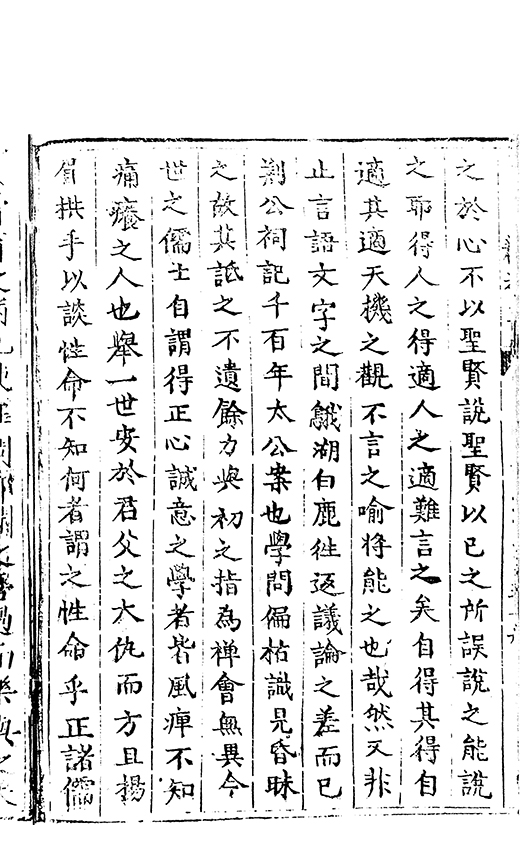 之於心不以聖賢説聖賢以已之所誤說之能說
之耶得人之得適人之適難言之矣自得其得自
適其適天機之觀不言之喻将能之也哉然又非
止言語文字之間鵝湖白鹿徃返議論之差而已
荆公祠記千百年太公案也學問偏枯識見昏昧
之故其詆之不遺餘力與初之指為禅會無異今
世之儒士自謂得正心誠意之學者皆風痺不知
痛癢之人也舉一世安於君父之大仇而方且揚
眉拱手以談性命不知何者謂之性命乎正諸儒